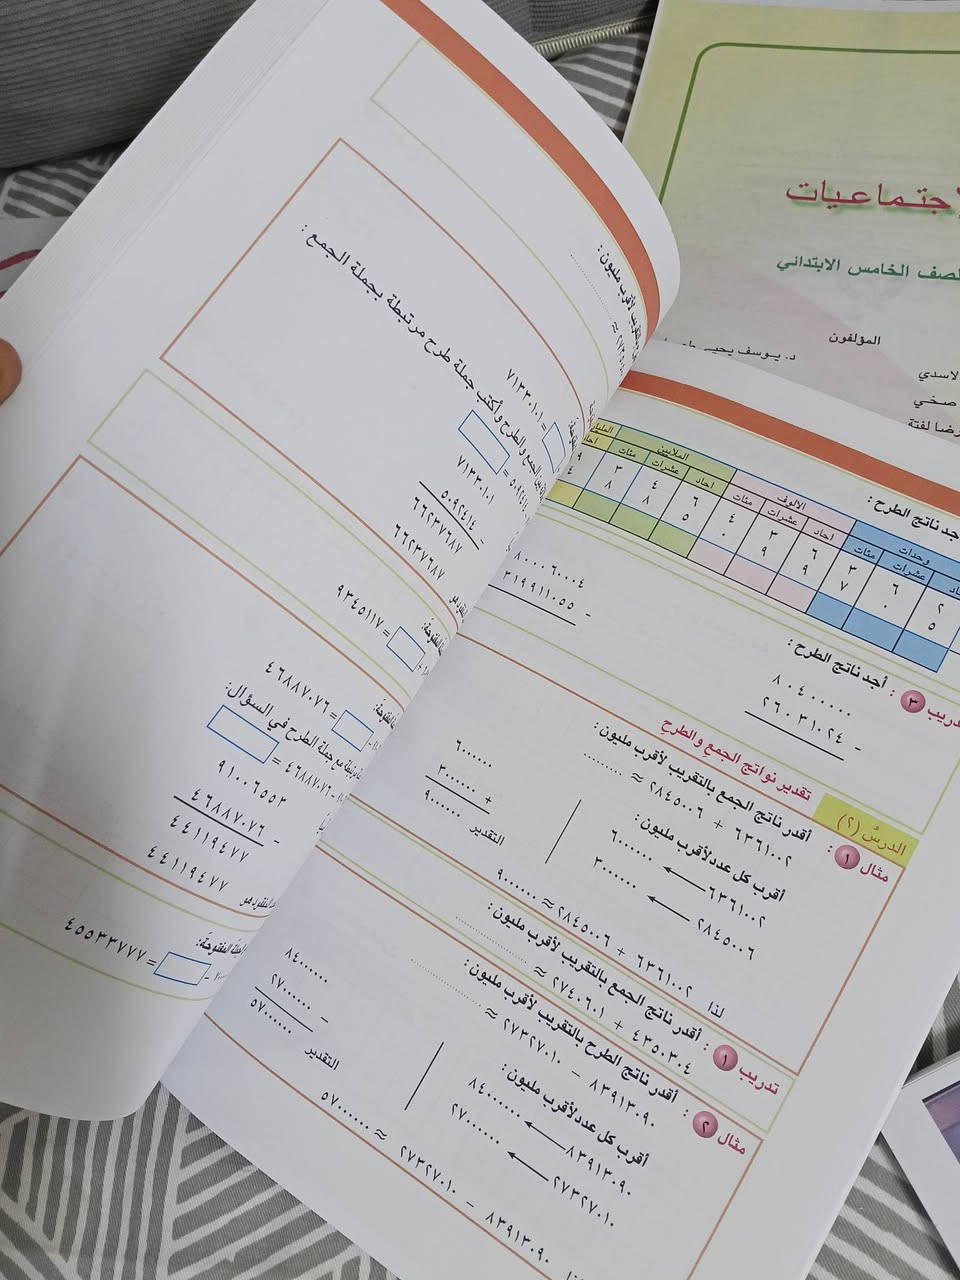 جتماعيات
لصف الخامس الابتدائي
المؤلفون
د. يوسف يحيى
الاسدي
رضا لفتة
جد ناتج الطرح :
وحدات الالوف الملايين
عشرات مئات احاد عشرات مئات احاد عشرات مئات
٢ ٦ ٣ ٦ ٣ ٤ ٦ ٤ ٣ ٩
٥ ٠ ٧ ٩ ٩ ٠ ٥ ٨ ٨
٨٠٠٠٦٠٠٤
٣١٩٩١١٠٥٥ -
تدريب ٣ : أجد ناتج الطرح :
٨٠٤٠٠٠٠٠
٢٦٠٣١٠٢٤ -
الدرسُ (٢) تقدير نواتج الجمع والطرح
مثال ١ : أقدر ناتج الجمع بالتقريب لأقرب مليون :
٦٣٦١٠٠٢ + ٢٨٤٥٠٠٦ ≈ ........
أقرب كل عدد لأقرب مليون :
٦٣٦١٠٠٢ ← ٦٠٠٠٠٠٠
٢٨٤٥٠٠٦ ← ٣٠٠٠٠٠٠
٦٠٠٠٠٠٠
٣٠٠٠٠٠٠ +
٩٠٠٠٠٠٠ التقدير
لذا ٦٣٦١٠٠٢ + ٢٨٤٥٠٠٦ ≈ ٩٠٠٠٠٠٠
تدريب ١ : أقدر ناتج الجمع بالتقريب لأقرب مليون :
٤٣٥٠٣٠٤ + ٢٧٤٠٦٠١ ≈ ........
مثال ٢ : أقدر ناتج الطرح بالتقريب لأقرب مليون :
٨٣٩١٣٠٩٠ - ٢٧٣٢٧٠١٠ ≈ ........
أقرب كل عدد لأقرب مليون :
٨٣٩١٣٠٩٠ ← ٨٤٠٠٠٠٠٠
٢٧٣٢٧٠١٠ ← ٢٧٠٠٠٠٠٠
٨٤٠٠٠٠٠٠
٢٧٠٠٠٠٠٠ -
٥٧٠٠٠٠٠٠ التقدير
٨٣٩١٣٠٩٠ - ٢٧٣٢٧٠١٠ ≈ ٥٧٠٠٠٠٠٠
بالتقريب لأقرب مليون :
٧١٣٣٠١٠١ =
الجمع والطرح وأكتب جملة طرح مرتبطة بجملة الجمع :
٧١٣٣٠١٠١
٥٠٩٢٤١٤ -
٦٦٢٣٧٦٨٧
٦٦٢٣٧٦٨٧
٩٣٤٥١١٧ =
٤٦٨٨٧٠٧٦ =
مع جملة الطرح في السؤال:
= ٤٦٨٨٧٠٧٦ -
٩١٠٠٦٥٥٣
٤٦٨٨٧٠٧٦ -
٤٤١١٩٤٧٧
٤٤١١٩٤٧٧
المفتوحة:
٤٥٥٣٣٧٧٧ =